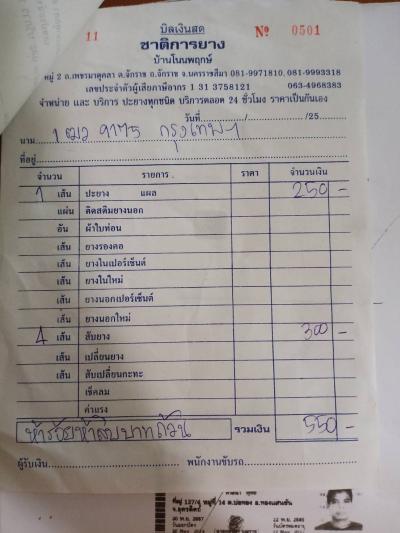 บิลเงินสด
11 № 0501
ชาติการยาง
บ้านโนนพฤกษ์
หมู่ 2 ถ.เพชรมาตุคลา ต.จักราช อ.จักราช จ.นครราชสีมา 081-9971810, 081-9993318
เลขประจำตัวผู้เสียภาษีอากร 1 31 3758121 063-4968383
จำหน่าย และ บริการ ปะยางทุกชนิด บริการตลอด 24 ชั่วโมง ราคาเป็นกันเอง
วันที่............/............/25............
นาม 1ฒว 9175 กรุงเทพฯ
ที่อยู่
จำนวน รายการ ราคา จำนวนเงิน
1 เส้น ปะยาง แผล 250 -
แผ่น ติดสติมยางนอก
อัน ผ้าใบท่อน
เส้น ยางรองคอ
เส้น ยางในเปอร์เซ็นต์
เส้น ยางในใหม่
เส้น ยางนอกเปอร์เซ็นต์
เส้น ยางนอกใหม่
4 เส้น สับยาง 300 -
เส้น เปลี่ยนยาง
เส้น สับเปลี่ยนกะทะ
เช็คลม
ค่าแรง
ห้าร้อยห้าสิบบาทถ้วน รวมเงิน 550 -
ผู้รับเงิน พนักงานขับรถ